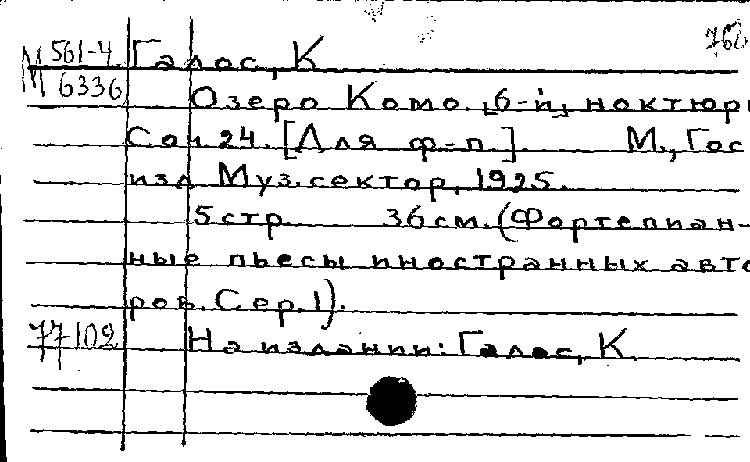 760
М 561-4 Галос, К
М 6336
Озеро Комо. [6-й] ноктюрн
Соч. 24. [Для ф-п.]. М., Гос
изд Муз. сектор, 1925.
5 стр 36 см. (Фортепиан-
ные пьесы иностранных авто
ров. Сер. 1).
77102 На издании: Галос, К.